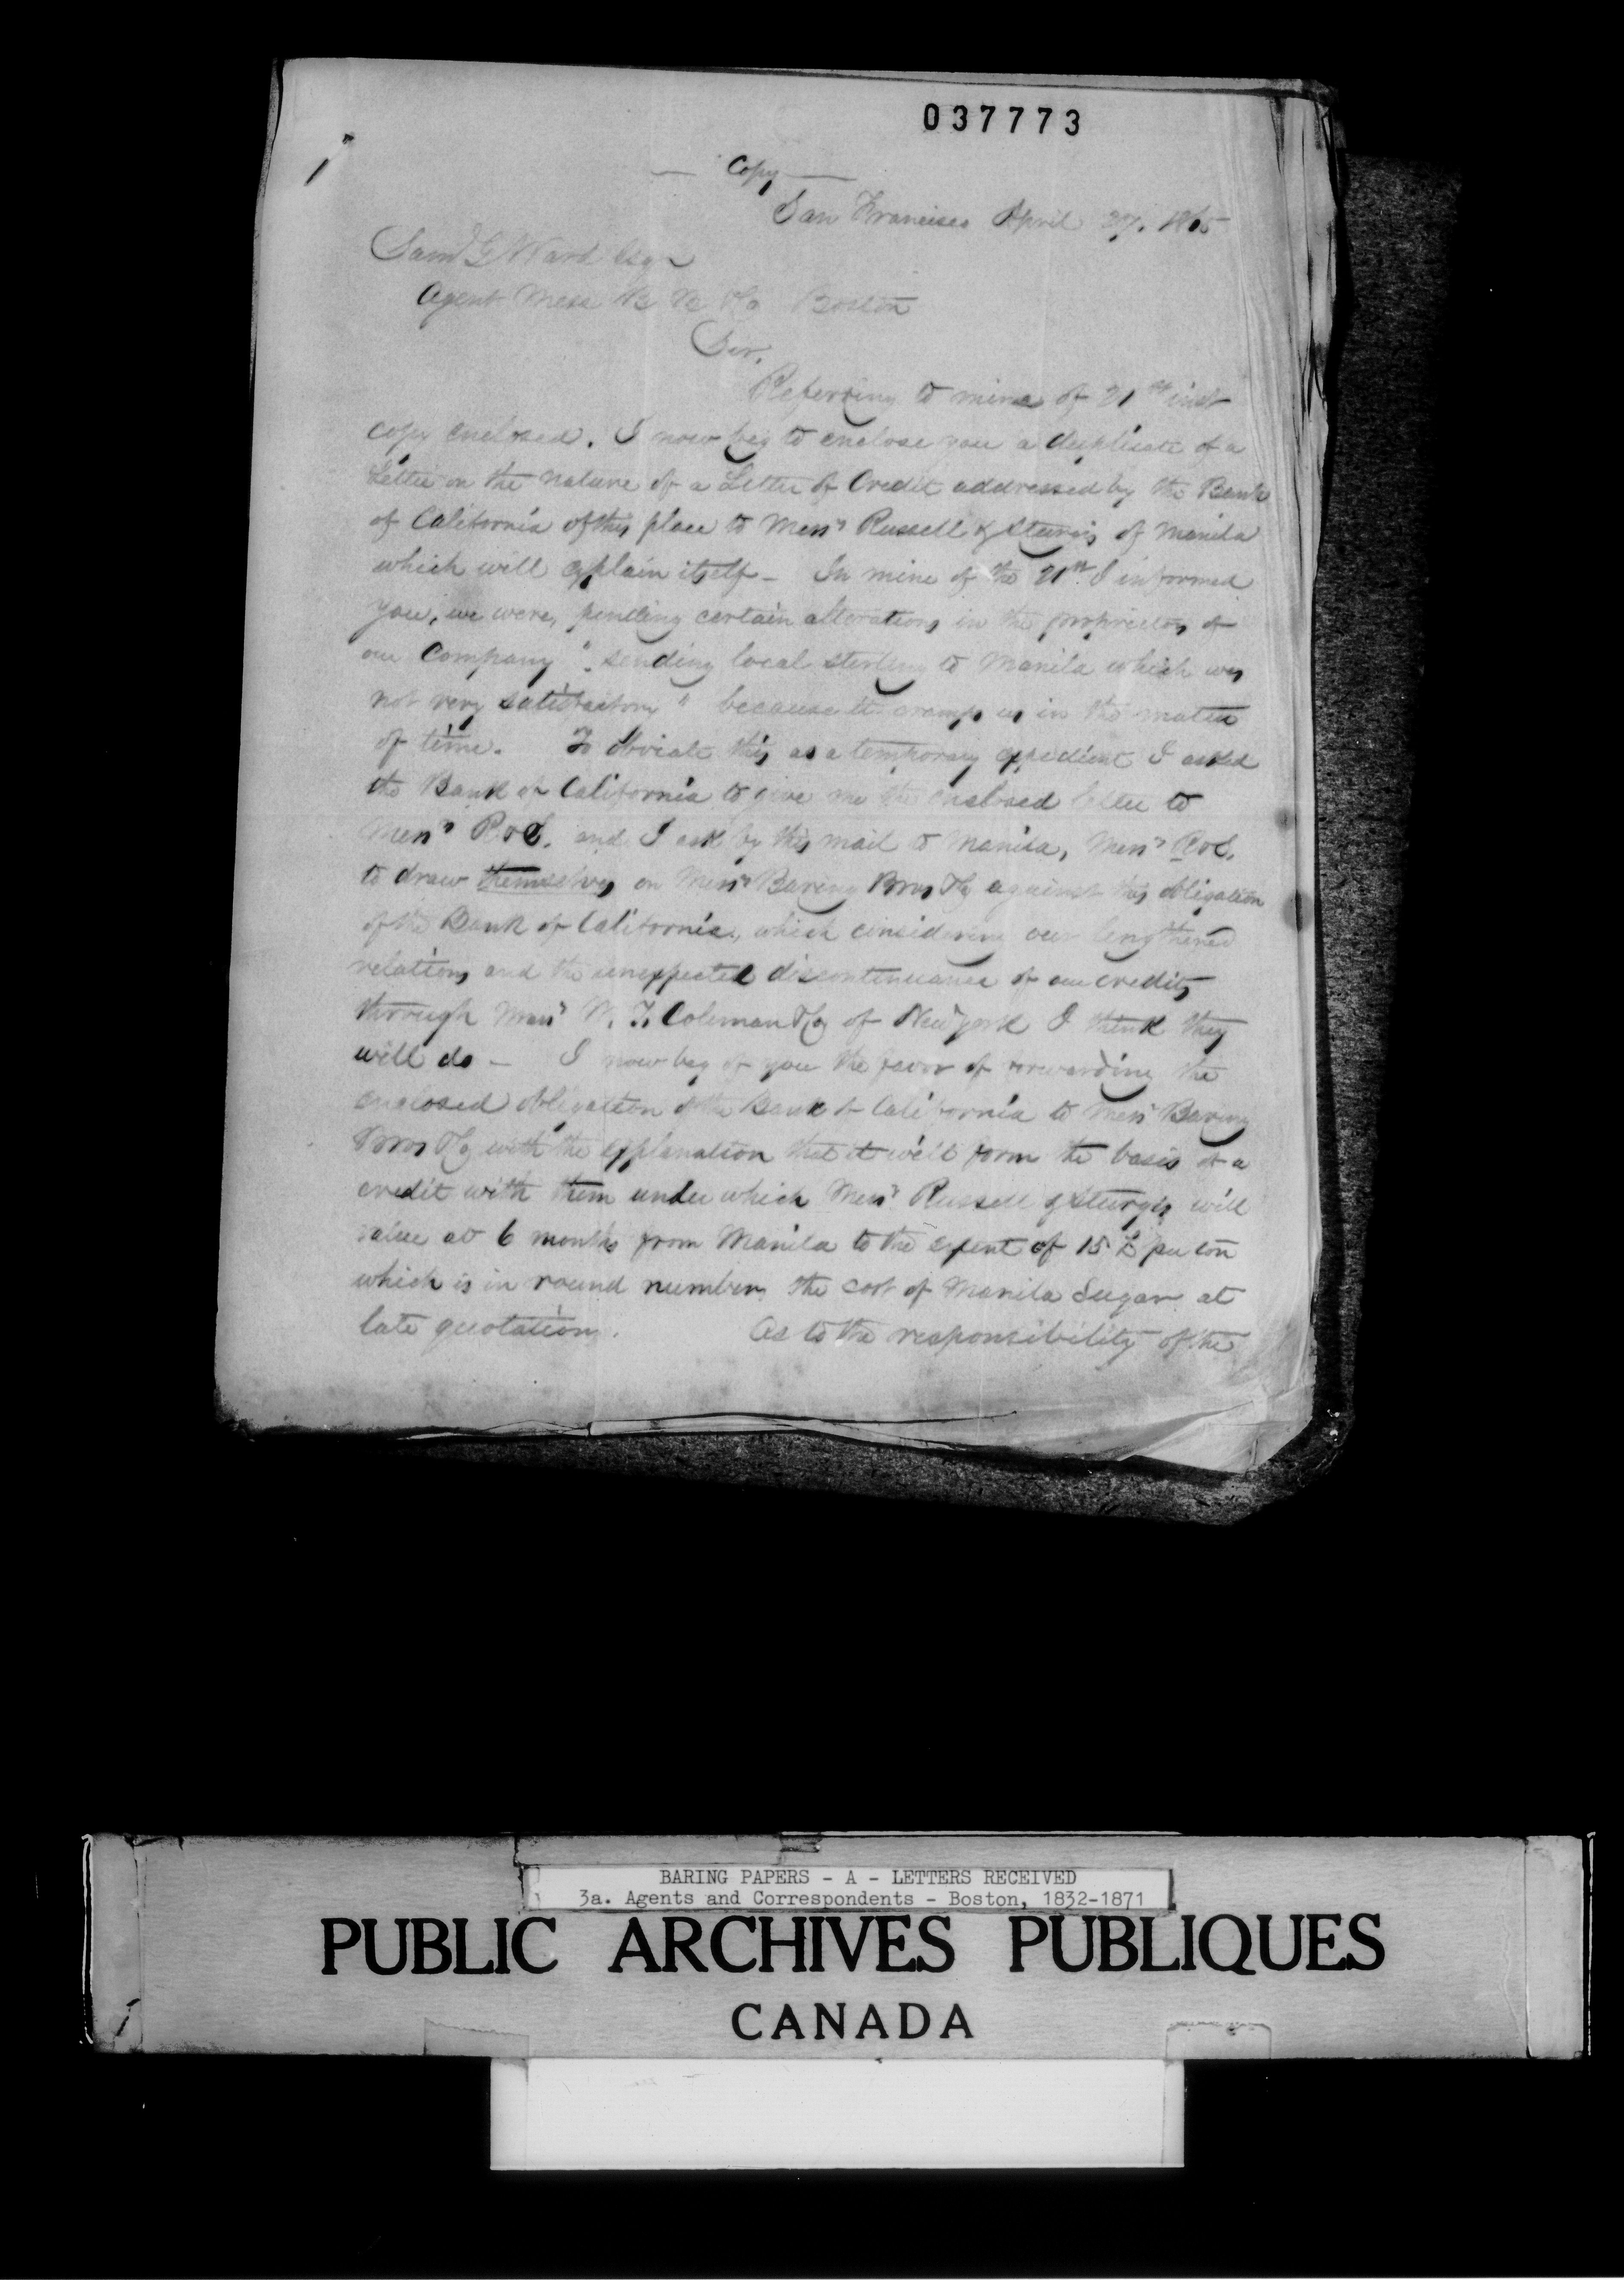 037773
Copy
San Francisco April 27. 1865
Saml G Ward Esqr
Agent Mess B B & Co Boston
Sir,
Referring to mine of 21st inst
copy enclosed. I now beg to enclose you a duplicate of a
Letter in the nature of a Letter of Credit addressed by the Bank
of California of this place to Messrs Russell & Sturgis of Manila
which will explain itself - In mine of the 21st I informed
you, we were, pending certain alterations in the proprietors of
our Company " sending local sterling to Manila which was
not very satisfactory " because it cramps us in the matter
of time. To obviate this as a temporary expedient I asked
the Bank of California to give me the enclosed letter to
Messrs R & S. and I ask by this mail to Manila, Messrs R & S.
to draw themselves on Messrs Baring Bros & Co against this obligation
of the Bank of California, which considering our lengthened
relations and the unexpected discontinuance of our credits
through Messrs W. T. Coleman & Co of New York I think they
will do - I now beg of you the favor of forwarding the
enclosed obligation of the Bank of California to Messrs Baring
Bros & Co with the explanation that it will form the basis of a
credit with them under which Messrs Russell & Sturgis will
value at 6 months from Manila to the extent of 15 £ per ton
which is in round numbers the cost of Manila Sugar at
late quotations. As to the responsibility of the
BARING PAPERS - A - LETTERS RECEIVED
3a. Agents and Correspondents - Boston, 1832-1871
PUBLIC ARCHIVES PUBLIQUES
CANADA